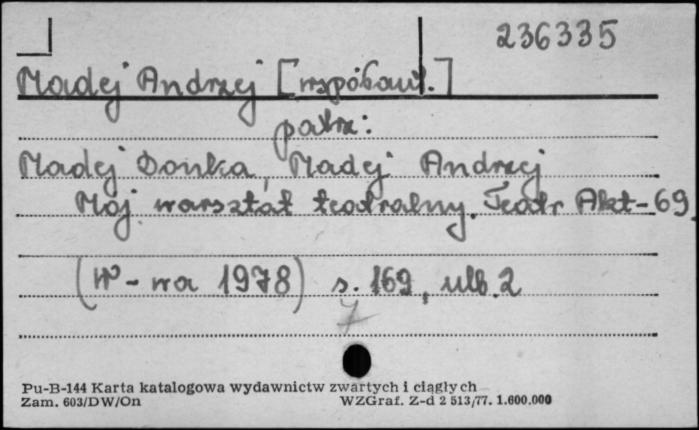 236335
Madej Andrzej [współaut.]
patrz:
Madej Bonka, Madej Andrzej
Mój warsztat teatralny. Teatr Akt-69.
(W-wa 1978) s. 169, ulb. 2
7
Pu-B-144 Karta katalogowa wydawnictw zwartych i ciągłych
Zam. 603/DW/On WZGraf. Z-d 2 513/77. 1.600.000